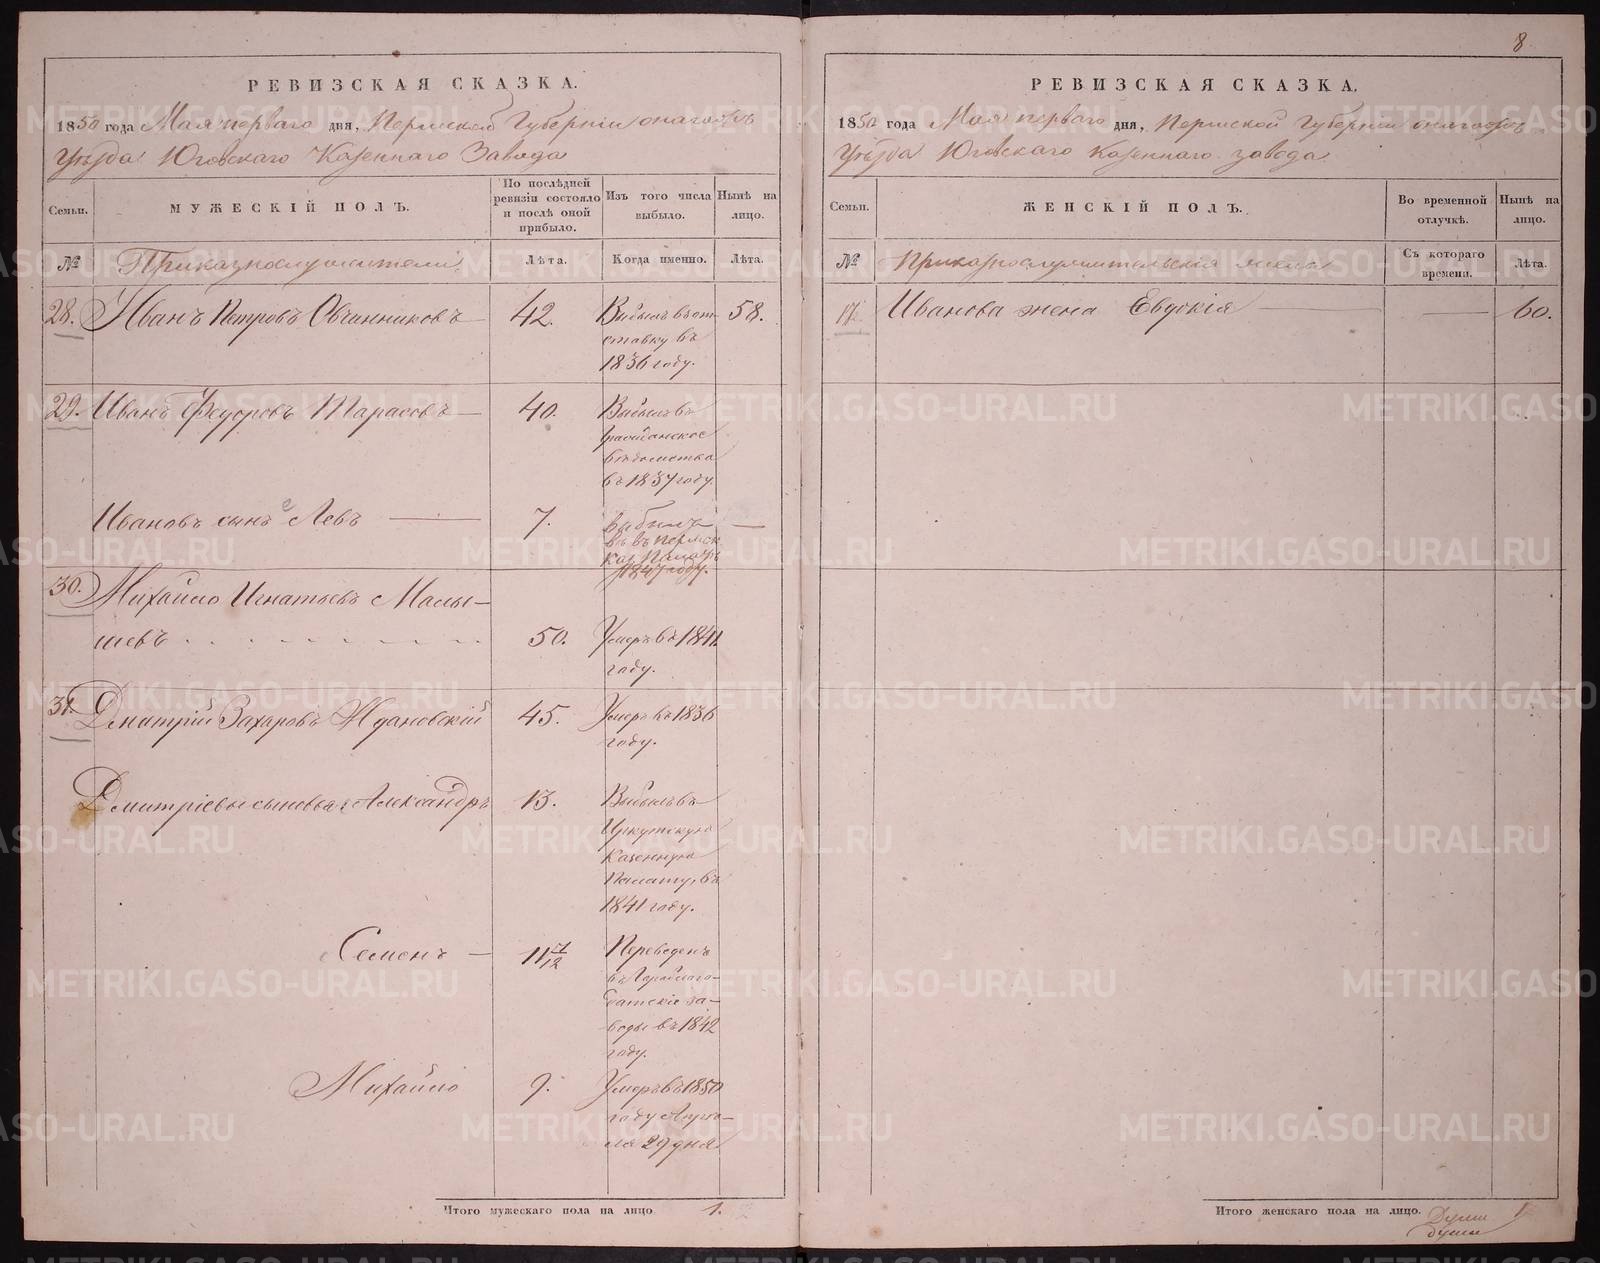 РЕВИЗСКАЯ СКАЗКА.
1850 года Мая перваго дня, Пермской Губерніи онагожъ
Уѣзда Юговскаго Казеннаго Завода
Семьи.
МУЖЕСКІЙ ПОЛЪ.
По послѣдней ревизіи состояло и послѣ оной прибыло.
Изъ того числа выбыло.
Нынѣ на лицо.
№
Приказнослужители.
Лѣта.
Когда именно.
Лѣта.
28. Иванъ Петровъ Овчинниковъ 42. Выбылъ въ от- 58.
ставку въ
1836 году.
29. Иванъ Федоровъ Тарасовъ 40. Выбылъ въ
Гражданское
вѣдомство
въ 1837 году.
Ивановъ сынъ Левъ 7. выбылъ
въ Пермск
каз. Палату
1847 году.
30. Михайло Игнатьевъ Малы-
шевъ 50. Умеръ въ 1841.
году.
31. Дмитрій Захаровъ Ждановскій 45. Умеръ въ 1836
году.
Дмитріевы сыновья: Александръ 13. Выбылъ въ
Иркутскую
Казенную
Палату, въ
1841 году.
Семенъ 11 7/12 Переведенъ
въ Горобlago-
датскіе за-
воды въ 1842
году.
Михайло 9. Умеръ въ 1850
году Апрѣ-
ля 29 дня
Итого мужескаго пола на лицо 1.
8.
РЕВИЗСКАЯ СКАЗКА.
1850 года Мая перваго дня, Пермской Губерніи онагожъ
Уѣзда Юговскаго Казеннаго завода
Семьи.
ЖЕНСКІЙ ПОЛЪ.
Во временной отлучкѣ.
Нынѣ на лицо.
№
Приказнослужительскія жены
Съ котораго времени.
Лѣта.
17. Иванова жена Евдокія 60.
Итого женскаго пола на лицо. Души 1
души
METRIKI.GASO-URAL.RU